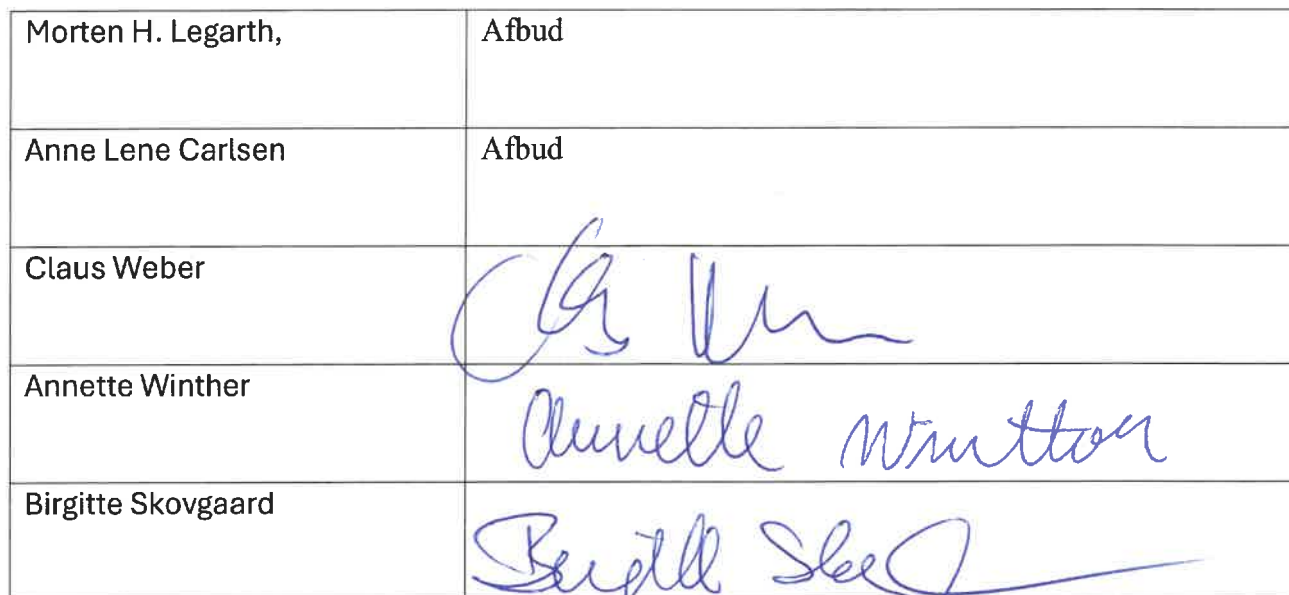 Morten H. Legarth, Afbud
Anne Lene Carlsen Afbud
Claus Weber
Annette Winther Annette
Birgitte Skovgaard